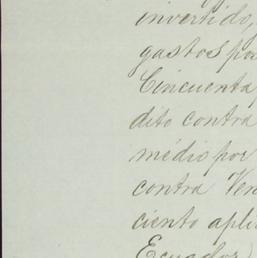 invertido,
gastos por
Cincuenta
dito contra
médio por
contra Ven
ciento apli
Ecuador